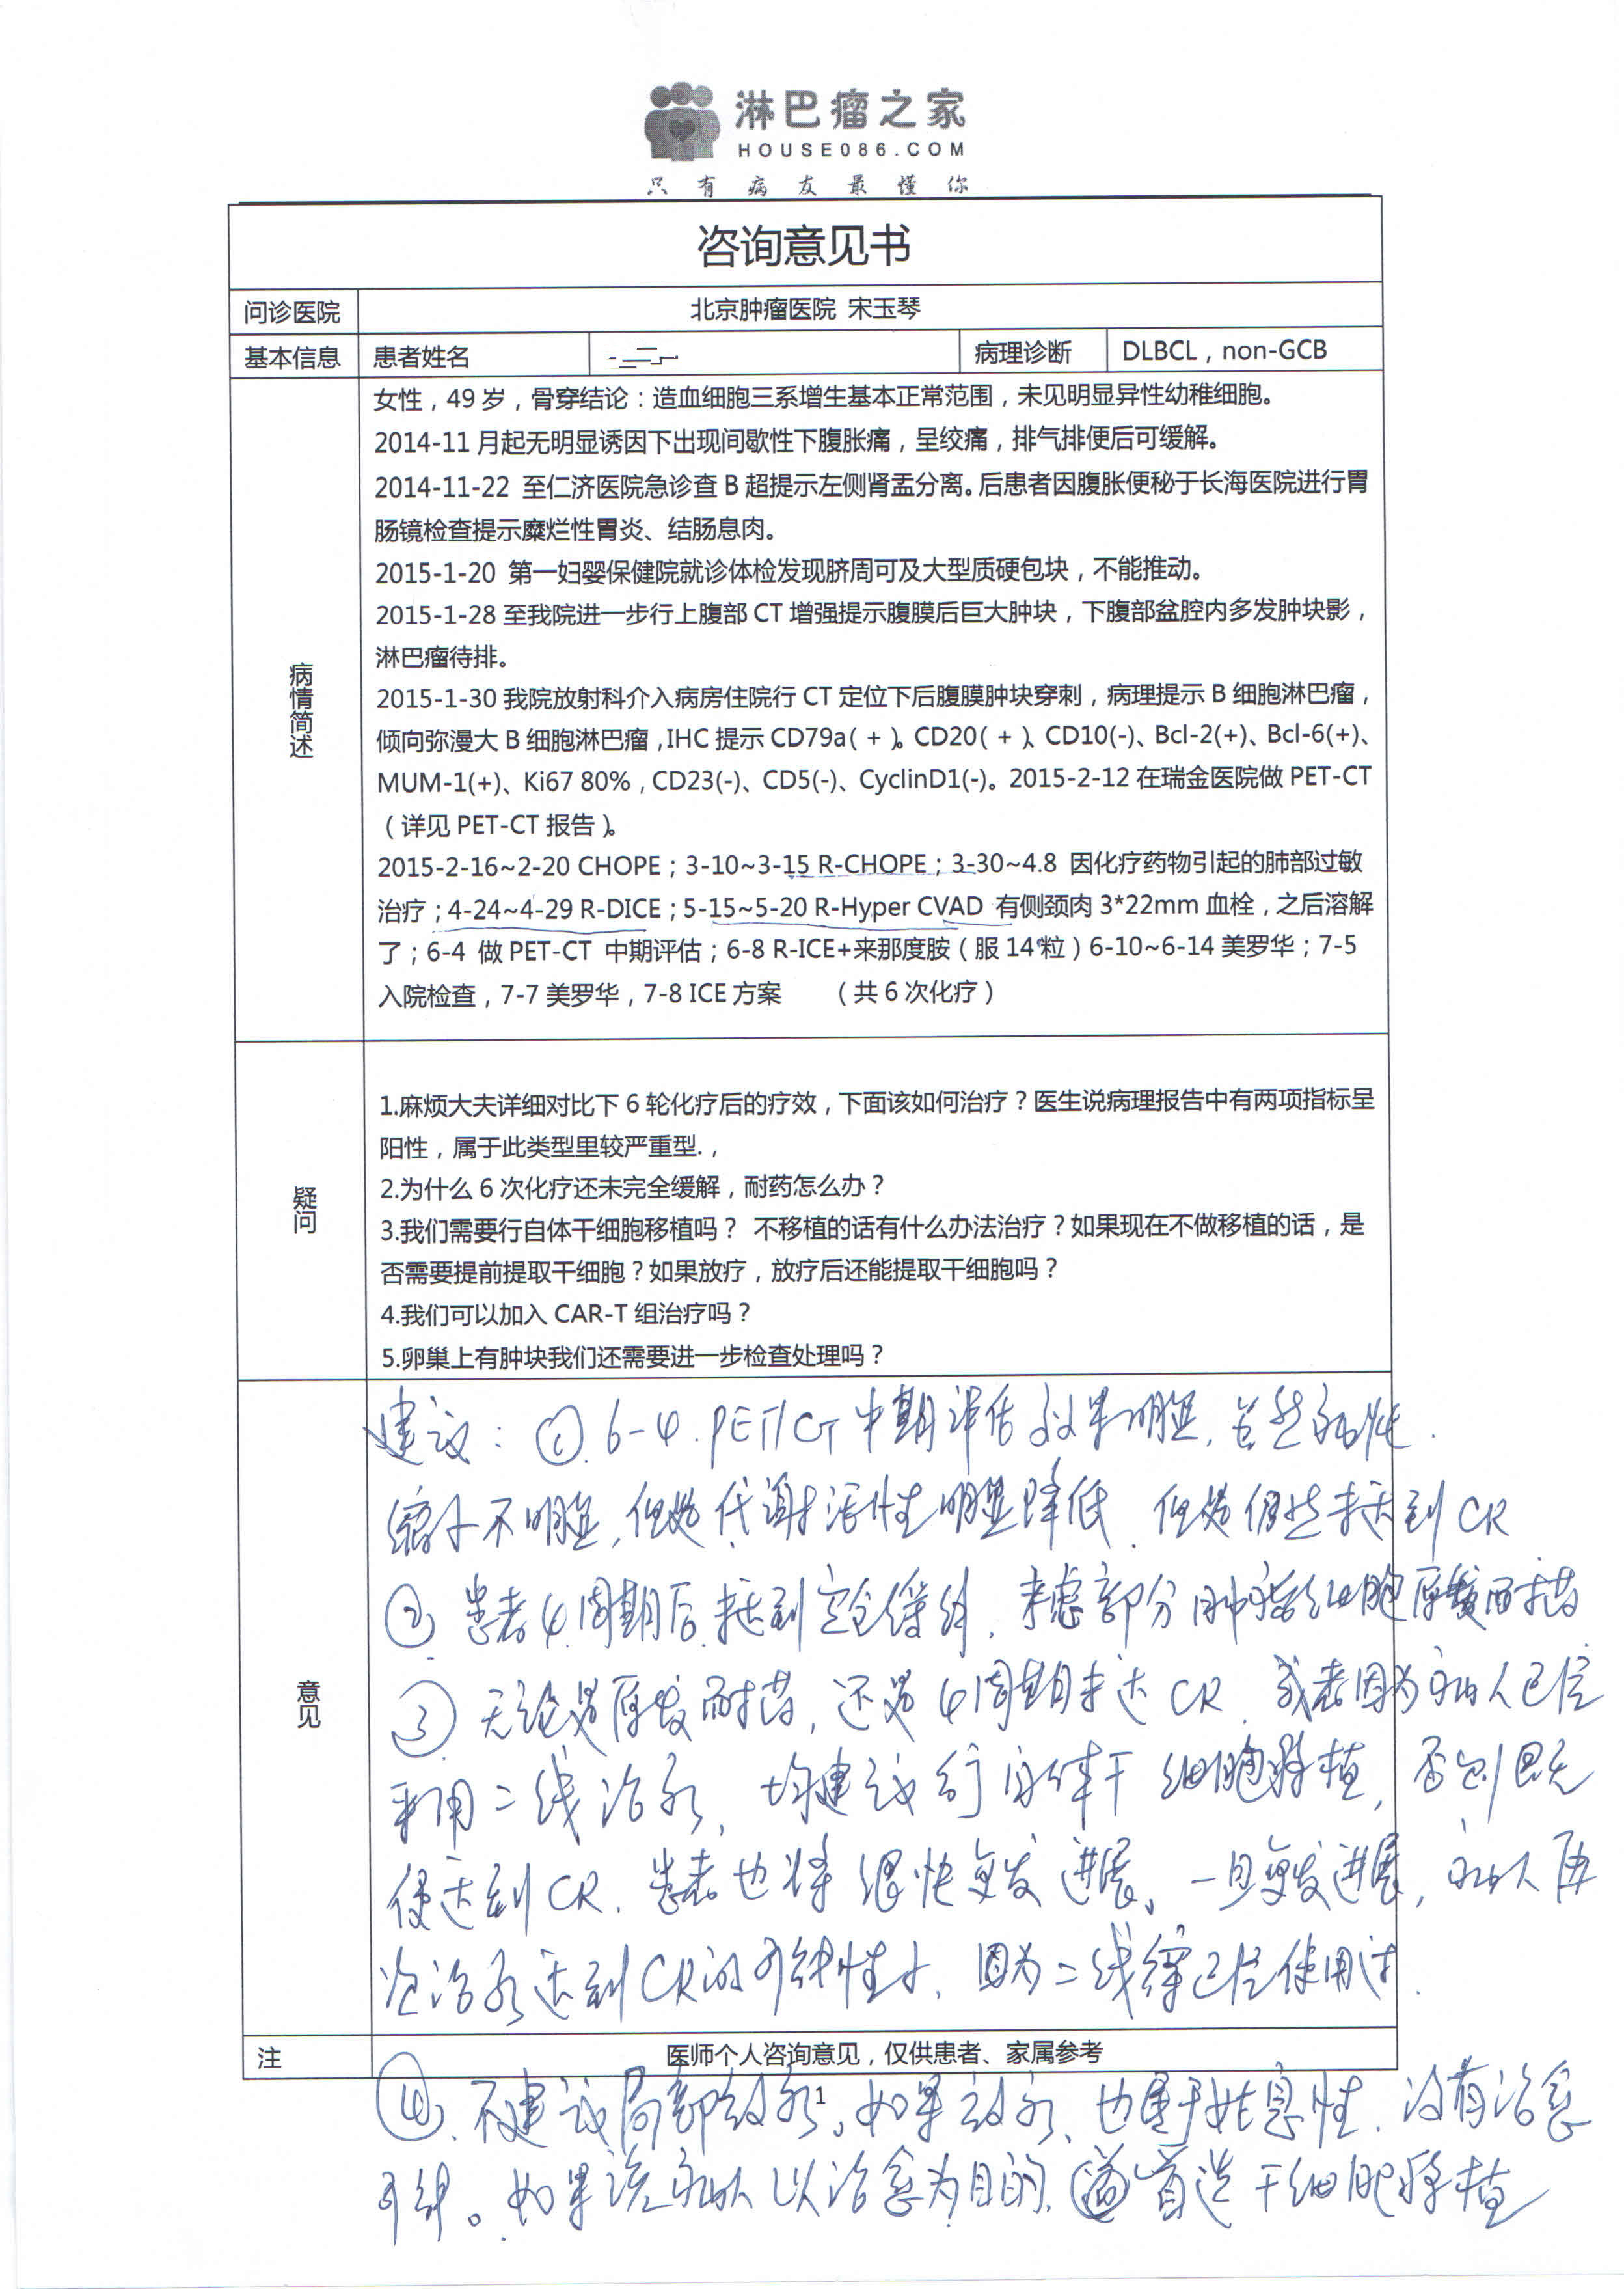 淋巴瘤之家
HOUSE086.COM
只有病友最懂你
咨询意见书
问诊医院 北京肿瘤医院 宋玉琴
基本信息 患者姓名 病理诊断 DLBCL，non-GCB
病情简述
女性，49岁，骨穿结论：造血细胞三系增生基本正常范围，未见明显异性幼稚细胞。
2014-11月起无明显诱因下出现间歇性下腹胀痛，呈绞痛，排气排便后可缓解。
2014-11-22 至仁济医院急诊查B超提示左侧肾盂分离。后患者因腹胀便秘于长海医院进行胃
肠镜检查提示糜烂性胃炎、结肠息肉。
2015-1-20 第一妇婴保健院就诊体检发现脐周可及大型质硬包块，不能推动。
2015-1-28至我院进一步行上腹部CT增强提示腹膜后巨大肿块，下腹部盆腔内多发肿块影，
淋巴瘤待排。
2015-1-30我院放射科介入病房住院行CT定位下后腹膜肿块穿刺，病理提示B细胞淋巴瘤，
倾向弥漫大B细胞淋巴瘤,IHC提示CD79a(+)、CD20(+)、CD10(-)、Bcl-2(+)、Bcl-6(+)、
MUM-1(+)、Ki67 80%，CD23(-)、CD5(-)、CyclinD1(-)。2015-2-12在瑞金医院做PET-CT
（详见PET-CT报告）。
2015-2-16~2-20 CHOPE；3-10~3-15 R-CHOPE；3-30~4.8 因化疗药物引起的肺部过敏
治疗；4-24~4-29 R-DICE；5-15~5-20 R-Hyper CVAD 有侧颈肉3*22mm血栓，之后溶解
了；6-4 做PET-CT 中期评估；6-8 R-ICE+来那度胺（服14粒）6-10~6-14美罗华；7-5
入院检查，7-7美罗华，7-8 ICE方案 （共6次化疗）
疑问
1.麻烦大夫详细对比下6轮化疗后的疗效，下面该如何治疗？医生说病理报告中有两项指标呈
阳性，属于此类型里较严重型.，
2.为什么6次化疗还未完全缓解，耐药怎么办？
3.我们需要行自体干细胞移植吗？ 不移植的话有什么办法治疗？如果现在不做移植的话，是
否需要提前提取干细胞？如果放疗，放疗后还能提取干细胞吗？
4.我们可以加入CAR-T组治疗吗？
5.卵巢上有肿块我们还需要进一步检查处理吗？
意见
建议：① 6-4. PET/CT中期评估效果明显，虽然病灶
缩小不明显，但是代谢活性明显降低，但是仍然未达到CR
② 患者4周期后未达到完全缓解，考虑部分肿瘤细胞原发耐药
③ 无论是原发耐药，还是4周期未达CR，或者因为病人已经
采用二线治疗，均建议行自体干细胞移植，否则即
便达到CR，患者也将很快复发进展。一旦复发进展，病人再
次治疗达到CR的可能性小，因为二线药已经使用过.
注 医师个人咨询意见，仅供患者、家属参考
1
④ 不建议局部放疗。如果放疗，也属于姑息性，没有治愈
可能。如果该病人以治愈为目的，首选干细胞移植